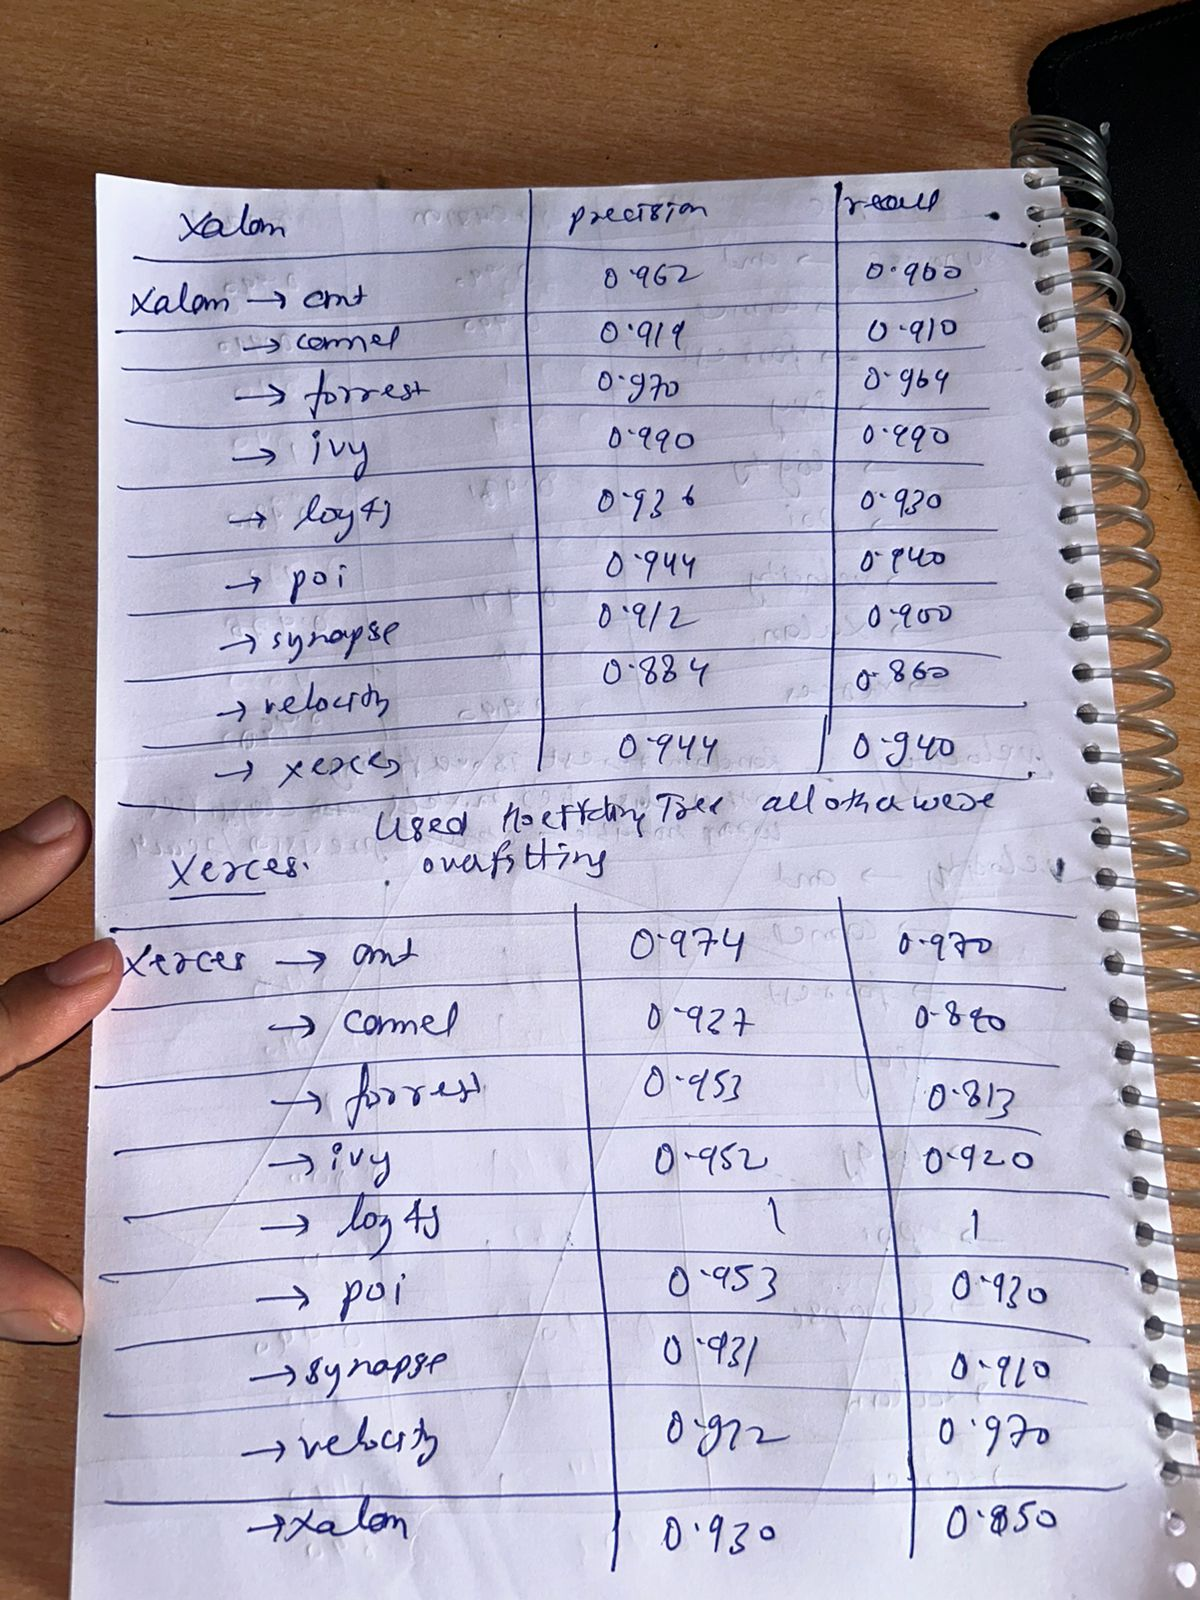 Xalan precision recall
Xalan → ant 0.962 0.960
→ camel 0.919 0.910
→ forrest 0.970 0.964
→ ivy 0.990 0.990
→ log4j 0.936 0.930
→ poi 0.944 0.940
→ synapse 0.912 0.900
→ velocity 0.884 0.860
→ xerces 0.944 0.940
Used Hoeffding Tree all other were
overfitting
Xerces.
Xerces → ant 0.974 0.970
→ camel 0.927
→ forrest 0.953 0.813
→ ivy 0.952 0.920
→ log4j 1 1
→ poi 0.953 0.930
→ synapse 0.931 0.910
→ velocity 0.970
→ xalan 0.930 0.850